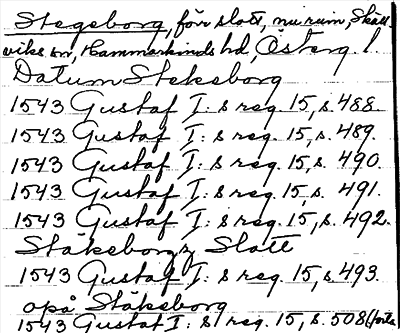 Stegeborg, förr slott, nu ruin, Skäll
viks sn, Hammarkinds hd, Österg. l.
Datum Steksborg
1543 Gustaf I:s reg. 15, s. 488.
1543 Gustaf I:s reg. 15, s. 489.
1543 Gustaf I:s reg. 15, s. 490.
1543 Gustaf I:s reg. 15, s. 491.
1543 Gustaf I:s reg. 15, s. 492.
Stäkeborgz Slott
1543 Gustaf I:s reg. 15, s. 493.
opå Stäkeborg
1543 Gustaf I:s reg. 15, s. 508